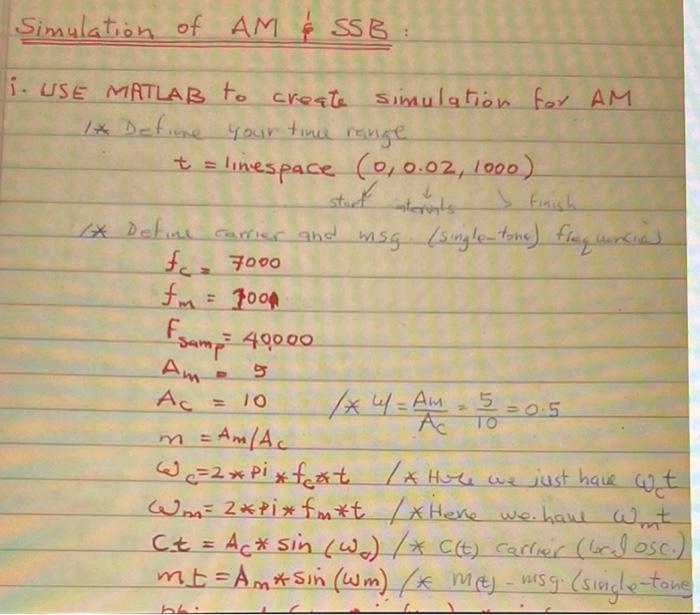 Simulation of AM & SSB :
i. USE MATLAB to create simulation for AM
/* Define your time range
t = linespace (0, 0.02, 1000)
start intervals finish
/* Define carrier and msg. (single-tone) frequencies
fc = 7000
fm =
Fsamp = 40000
Am = 5
Ac = 10 /* μ = Am/Ac = 5/10 = 0.5
m = Am/Ac
ωc=2*pi*fc*t /* Here we just have ωct
ωm= 2*pi*fm*t /* Here we have ωmt
Ct = Ac* sin (ωc) /* C(t) carrier (local osc.)
mt = Am*sin (ωm) /* m(t) - msg. (single-tone